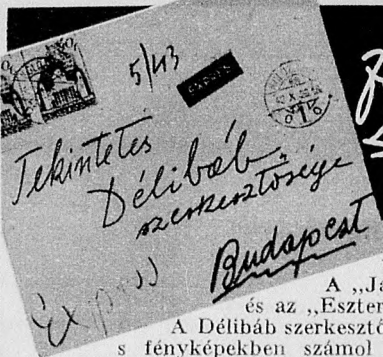 5/43
EXPRESS
Tekintetes
Délibáb
szerkesztősége
Budapest
Express
A „Ja
és az „Eszter
A Délibáb szerkesztő
s fényképekben számol